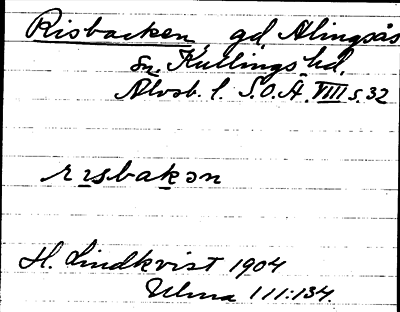 Risbacken, gd, Alingsås
sn, Kullings hd,
Älvsb. l. S.O.Ä. VIII s. 32
rɪsbakən
H. Lindkvist 1904
Ulma 111:134.